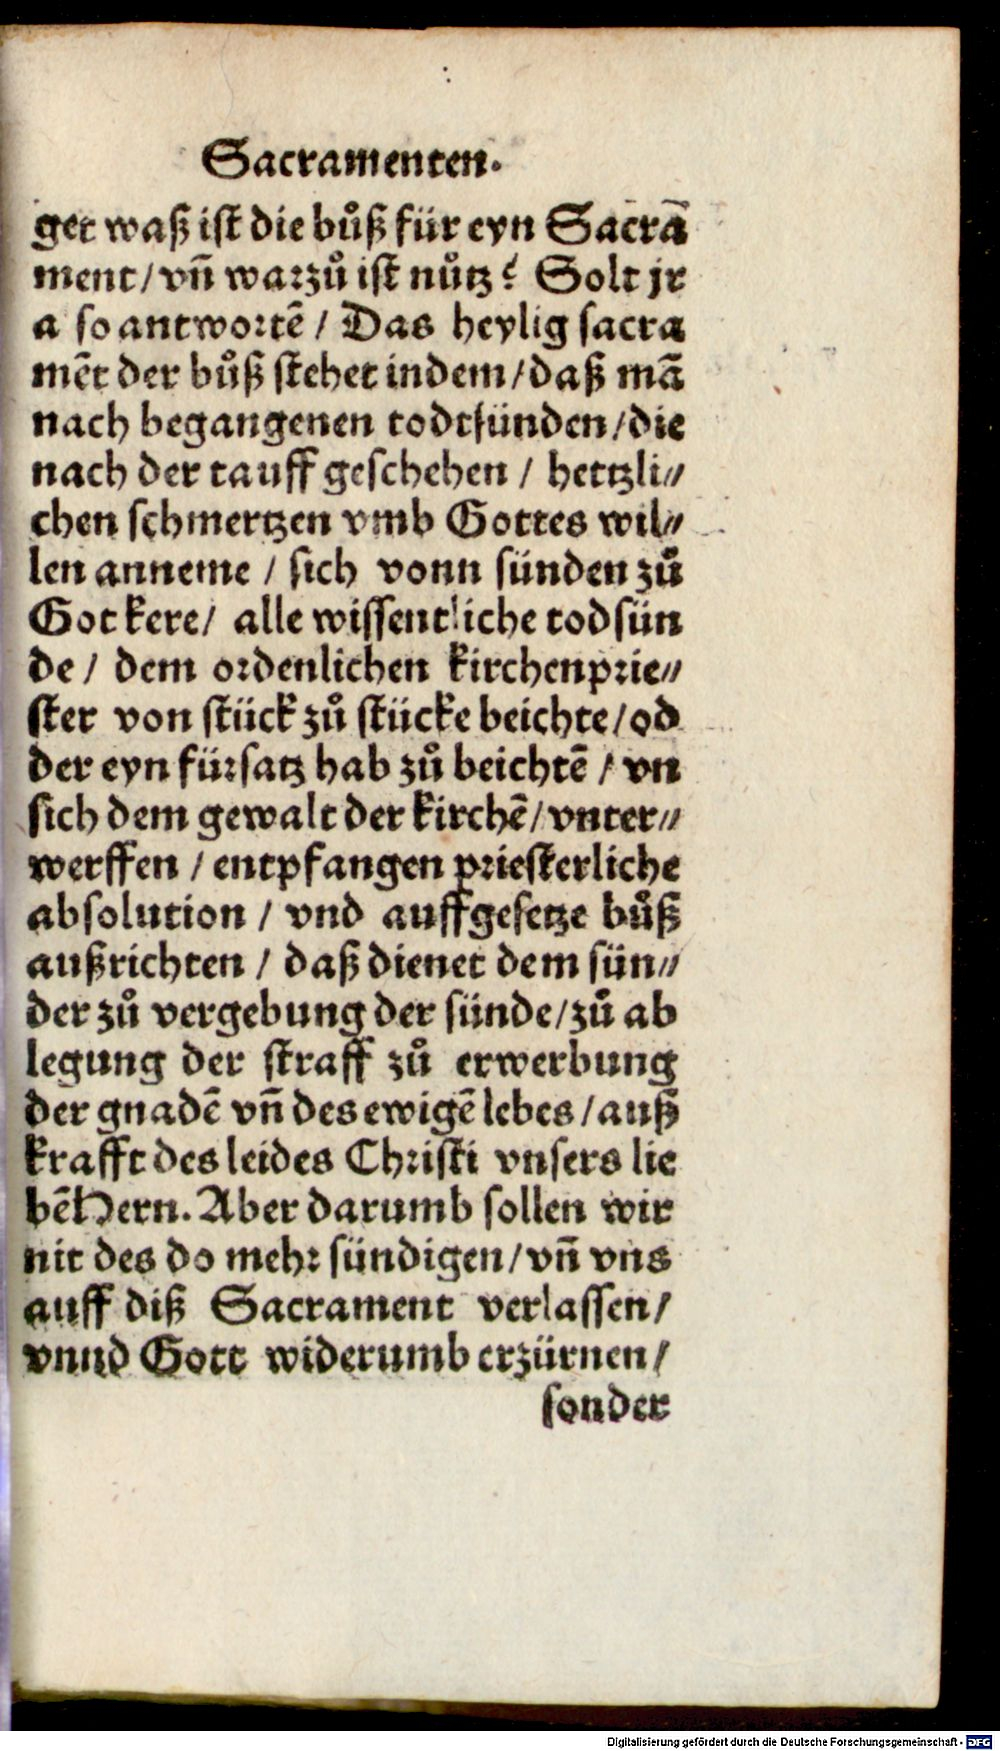 Sacramenten.
get waß ist die bůß für eyn Sacrā
ment/ vn̄ warzů ist nůtz? Solt jr
a so antwortē / Das heylig sacra
mēt der bůß stehet indem/ daß mā
nach begangenen todtsünden/ die
nach der tauff geschehen / hertzli⸗
chen schmertzen vmb Gottes wil⸗
len anneme / sich vonn sünden zů
Got kere/ alle wissentliche todsün
de/ dem ordenlichen kirchenprie⸗
ster von stück zů stücke beichte/ od
der eyn fürsatz hab zů beichtē / vn
sich dem gewalt der kirchē/ vnter⸗
werffen / entpfangen priesterliche
absolution / vnd auffgesetze bůß
außrichten / daß dienet dem sün⸗
der zů vergebung der sünde/ zů ab
legung der straff zů erwerbung
der gnadē vn̄ des ewigē lebes/ auß
krafft des leides Christi vnsers lie
bē Hern. Aber darumb sollen wir
nit des do mehr sündigen/ vn̄ vns
auff diß Sacrament verlassen/
vnnd Gott widerumb erzürnen/
sonder
Digitalisierung gefördert durch die Deutsche Forschungsgemeinschaft - DFG